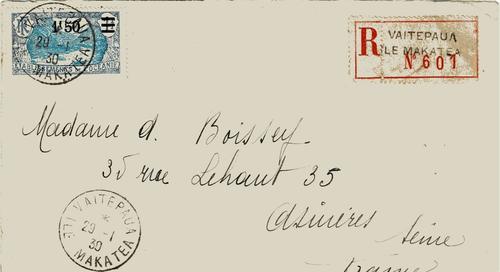 VAITEPAUA
29 -1
30
MAKATEA
1f50
ETABLISSEMENTS DE L'OCEANIE
R
VAITEPAUA
ILE MAKATEA
N° 601
Madame d. Boissey.
35 rue Lehaut 35
Asinières Seine
ILE VAITEPAUA
*
29 -1
30
MAKATEA